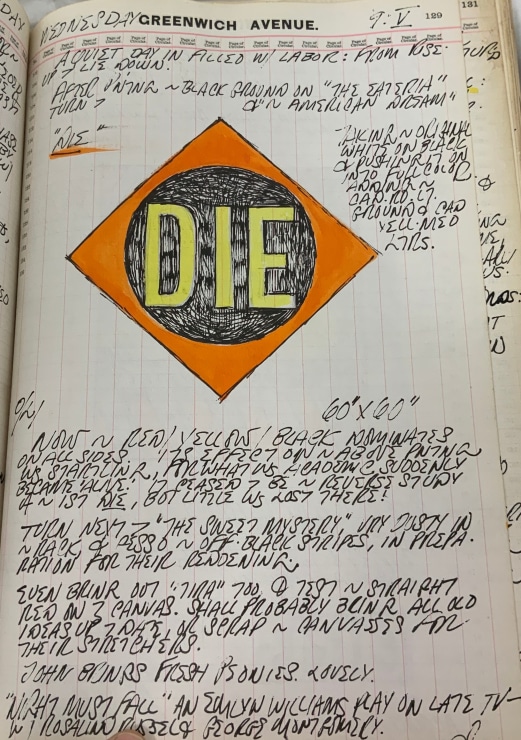 WEDNESDAY GREENWICH AVENUE. 9·V 129 131
A QUIET DAY IN FILLED W/ LABOR: FROM RISE-
UP 7 LIE DOWN.
AFTER PNTNG ~ BLACK GROUND ON "THE EATERIA"
TURN 7 & ~ AMERICAN DREAM"
"DIE"
TAKING ~ ORIGINAL
WHITE ON BLACK
& PUSHING IT ON
INTO FULL COLOR
ADDING ~
CAD. RD. LT.
GROUND & CAD
YELL. MED
LTRS.
DIE
60" X 60"
NOW ~ RED/YELLOW/BLACK DOMINATES
ON ALL SIDES. ITS EFFECT ON ~ ABOVE PNTNG
WS STARTLING, FOR WHAT WS ACADEMIC SUDDENLY
BECAME ALIVE. IT CEASED 7 BE ~ REVERSE STUDY
~ 1ST DIE, BUT LITTLE WS LOST THERE!
TURN NEXT 7 "THE SWEET MYSTERY" VRY DUSTY IN
~ RACK & GESSO ~ OFF-BLACK STRIPES, IN PREPA-
RATION FOR THEIR RENDERING.
EVEN BRING OUT "TIRA" TOO, & TEST ~ STRAIGHT
RED ON 7 CANVAS. SHALL PROBABLY BRING ALL OLD
IDEAS UP 7 DATE, OR SCRAP ~ CANVASSES FOR
THEIR STRETCHERS.
JOHN BRINGS FRESH PEONIES. LOVELY.
"NIGHT MUST FALL" AN EMLYN WILLIAMS PLAY ON LATE TV-
W/ ROSALIND RUSSELL & GEORGE MONTGOMERY.